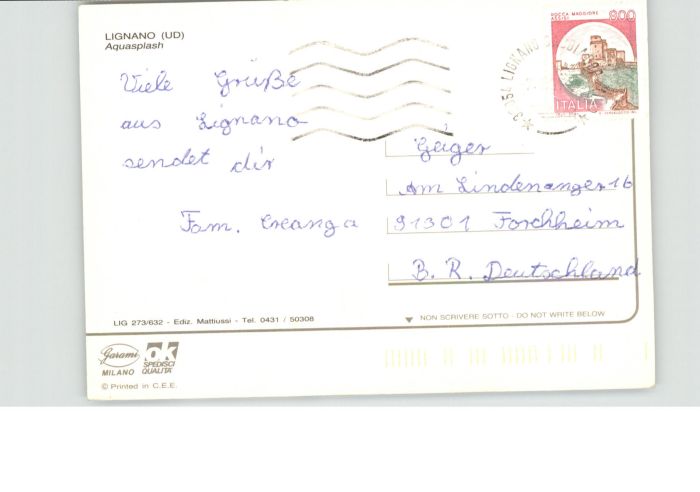 LIGNANO (UD)
Aquasplash
ROCCA MAGGIORE
ASSISI
800
ITALIA
LIGNANO
Viele Grüße
aus Lignano
sendet dir
Fam. Creanga
Geiger
Am Lindenanger 16
91301 Forchheim
B. R. Deutschland
LIG 273/632 - Ediz. Mattiussi - Tel. 0431 / 50308
NON SCRIVERE SOTTO - DO NOT WRITE BELOW
Garami
MILANO
OK
SPEDISCI
QUALITÀ
© Printed in C.E.E.